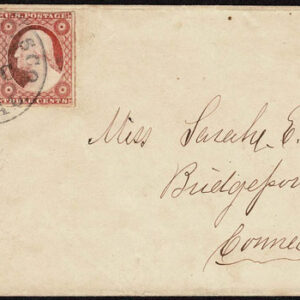 U.S. POSTAGE
THREE CENTS
Miss Sarah E.
Bridgepor
Connec